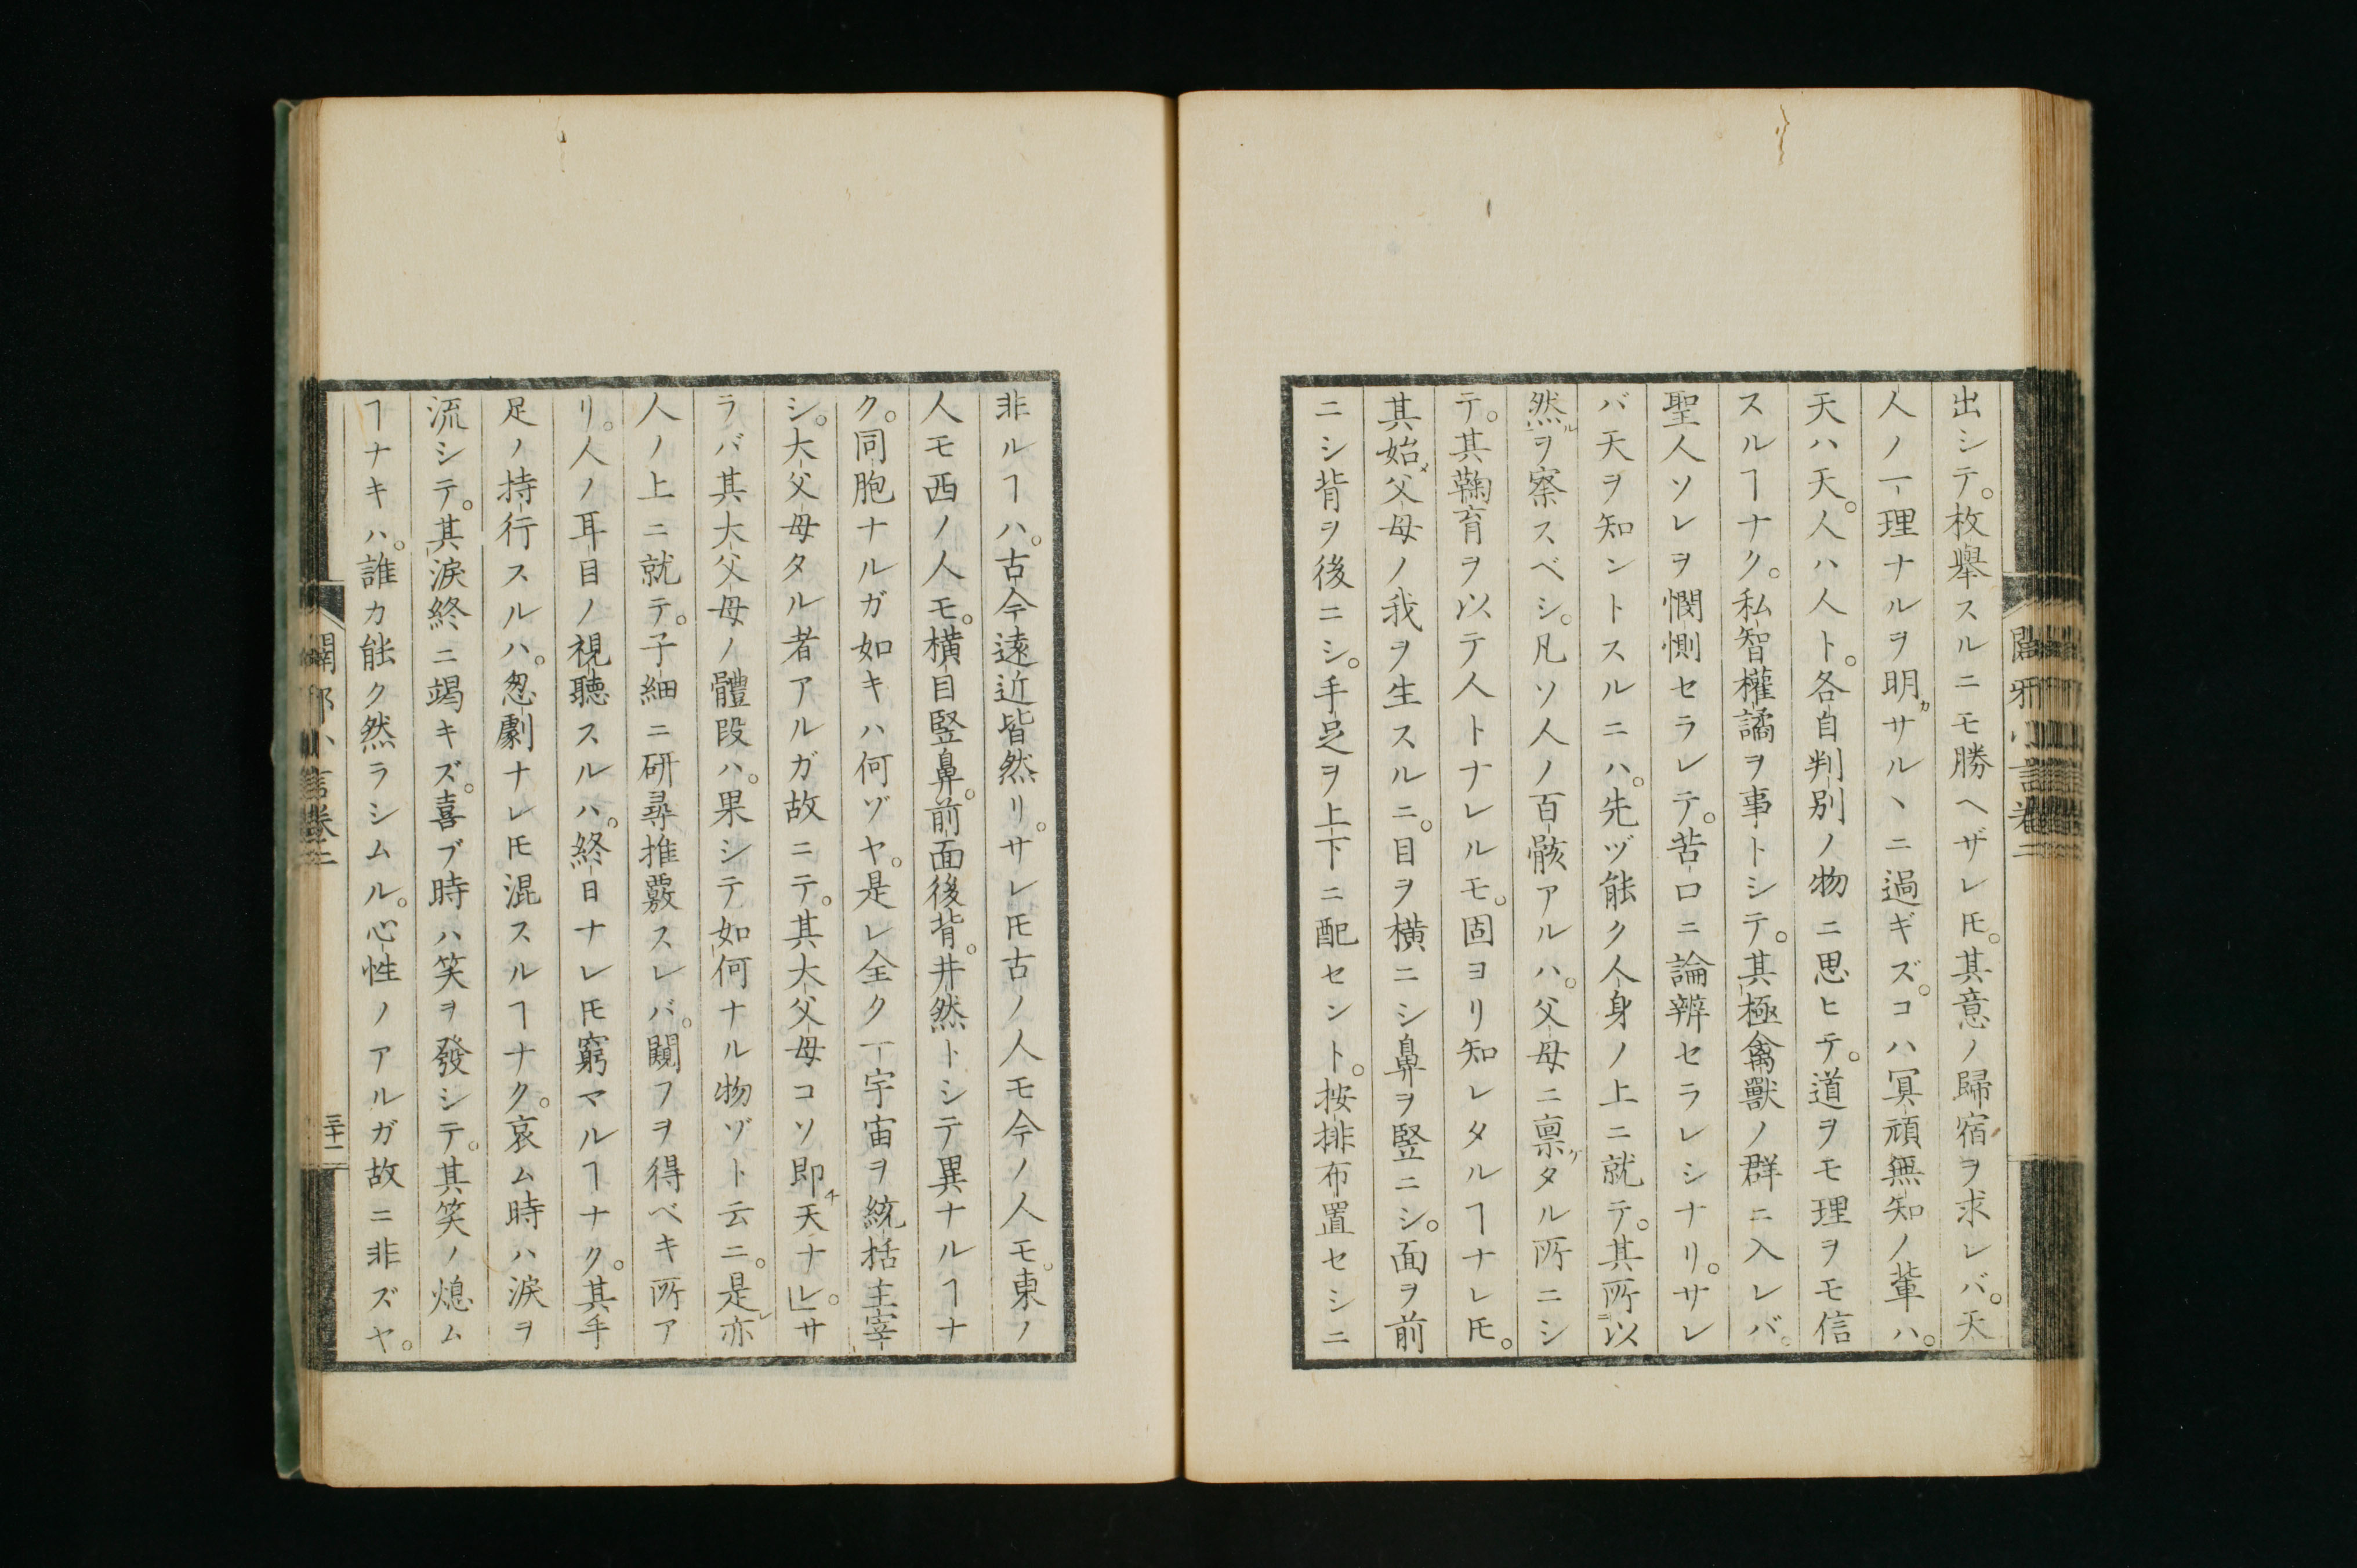 出シテ。枚擧スルニモ勝ヘザレ𪜈。其意ノ歸宿ヲ求レバ。天
人ノ一理ナルヲ明カサルヽニ過ギズ。コハ冥頑無知ノ輩ハ。
天ハ天。人ハ人ト。各自判別ノ物ニ思ヒテ。道ヲモ理ヲモ信
スルヿナク。私智權譎ヲ事トシテ。其極禽獸ノ群ニ入レバ。
聖人ソレヲ憫惻セラレテ。苦口ニ論辨セラレシナリ。サレ
バ天ヲ知ントスルニハ。先ヅ能ク人身ノ上ニ就テ。其所以
然ルヲ察スベシ。凡ソ人ノ百骸アルハ。父母ニ禀ケタル所ニシ
テ。其鞠育ヲ以テ人トナレルモ。固ヨリ知レタルヿナレ𪜈。
其始メ父母ノ我ヲ生スルニ。目ヲ横ニシ鼻ヲ竪ニシ。面ヲ前
ニシ背ヲ後ニシ。手足ヲ上下ニ配セント。按排布置セシニ
闢邪小言卷二
非ルヿハ。古今遠近皆然リ。サレ𪜈古ノ人モ今ノ人モ。東ノ
人モ西ノ人モ。横目竪鼻。前面後背。井然トシテ異ナルヿナ
ク。同胞ナルガ如キハ何ゾヤ。是レ全ク一宇宙ヲ統括主宰
シ。大父母タル者アルガ故ニテ。其大父母コソ即チ天ナレ」。サ
ラバ其大父母ノ體段ハ。果シテ如何ナル物ゾト云ニ。是レ亦
人ノ上ニ就テ。子細ニ研尋推覈スレバ。闚フヲ得ベキ所ア
リ。人ノ耳目ノ視聽スルハ。終日ナレ𪜈窮マルヿナク。其手
足ノ持行スルハ。怱劇ナレ𪜈混スルヿナク。哀ム時ハ淚ヲ
流シテ。其淚終ニ竭キズ。喜ブ時ハ笑ヲ發シテ。其笑ノ熄ム
ヿナキハ。誰カ能ク然ラシムル。心性ノアルガ故ニ非ズヤ。
闢邪小言卷二